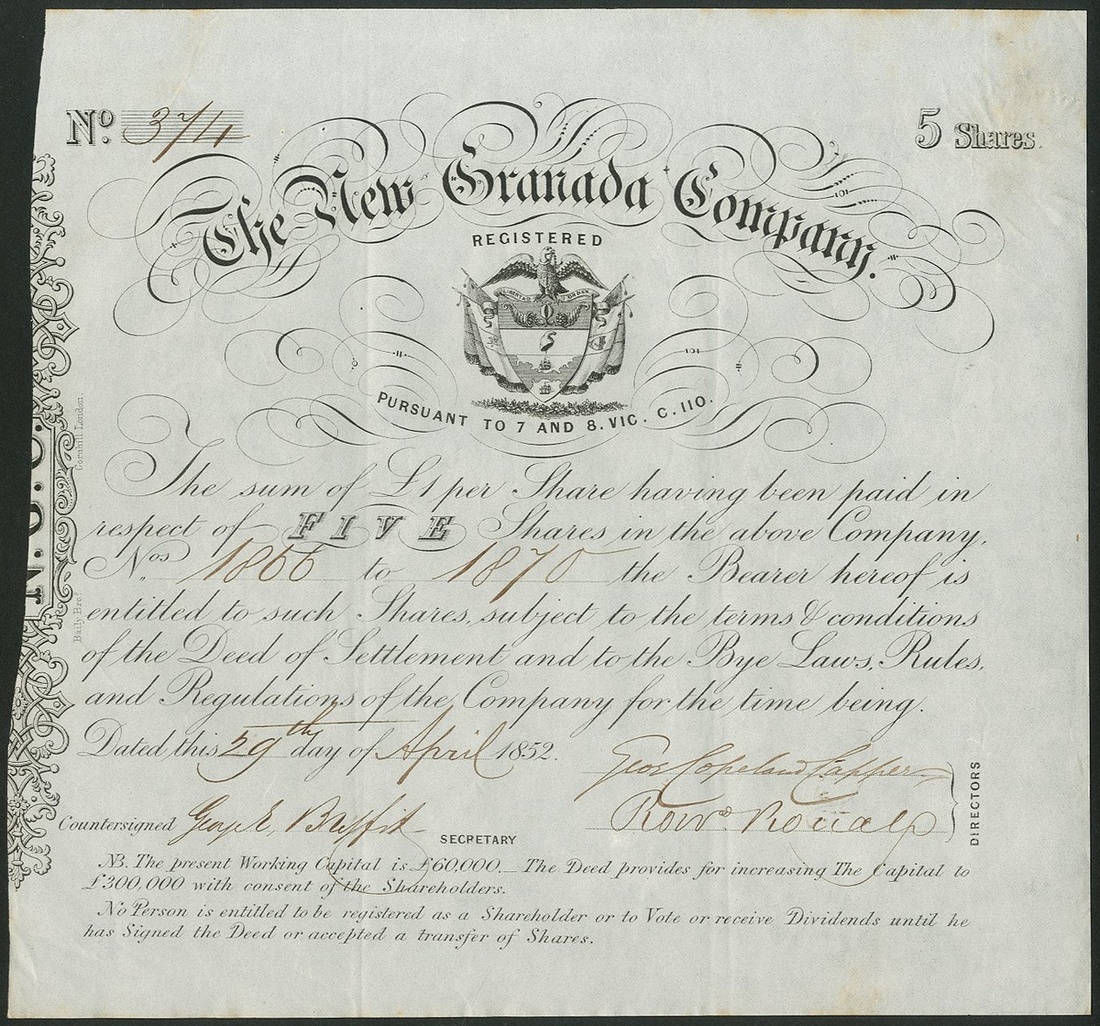 No. 374
5 Shares.
The New Granada Company.
REGISTERED
LIBERTAD Y ORDEN
PURSUANT TO 7 AND 8. VIC. C. 110.
The sum of £1 per Share having been paid in
respect of FIVE Shares in the above Company,
Nos. 1866 to 1870 the Bearer hereof is
entitled to such Shares, subject to the terms & conditions
of the Deed of Settlement and to the Bye Laws, Rules,
and Regulations of the Company for the time being.
Dated this 29th day of April 1852.
Geo. Copeland Capper
DIRECTORS
Countersigned
SECRETARY
NB. The present Working Capital is £60,000.— The Deed provides for increasing The Capital to
£300,000 with consent of the Shareholders.
No Person is entitled to be registered as a Shareholder or to Vote or receive Dividends until he
has Signed the Deed or accepted a transfer of Shares.
Baily Bros. Cornhill London.
N. G. C.